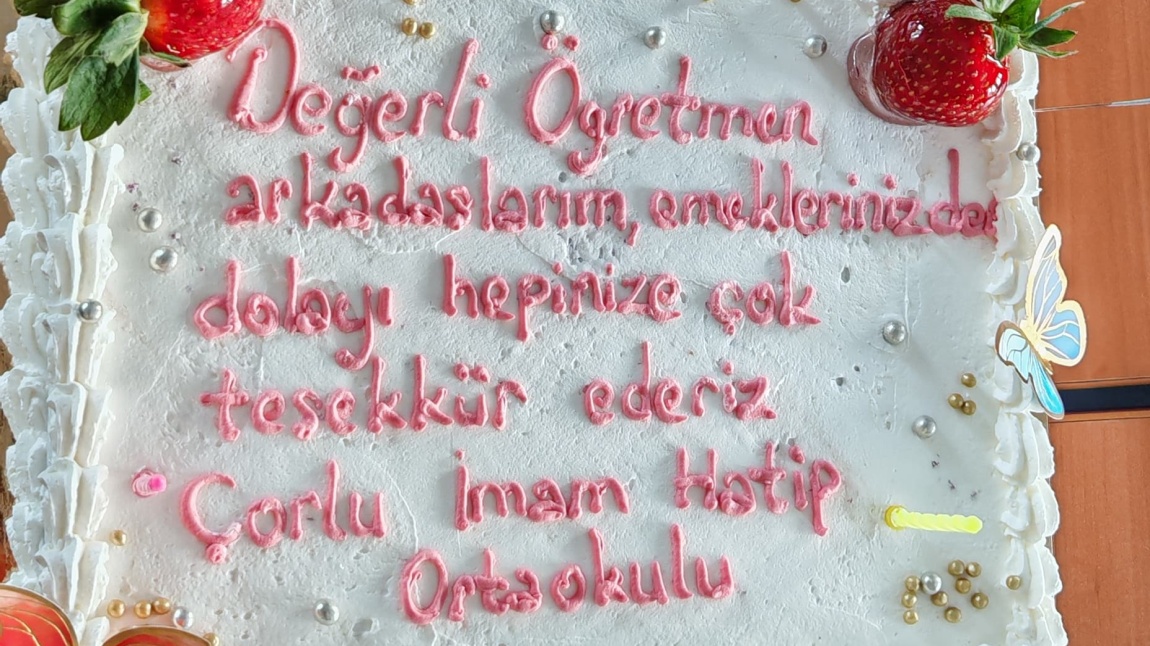 Değerli Öğretmen
arkadaslarım, emeklerinizden
dolayı hepinize çok
tesekkür ederiz
Çorlu İmam Hatip
Ortaokulu